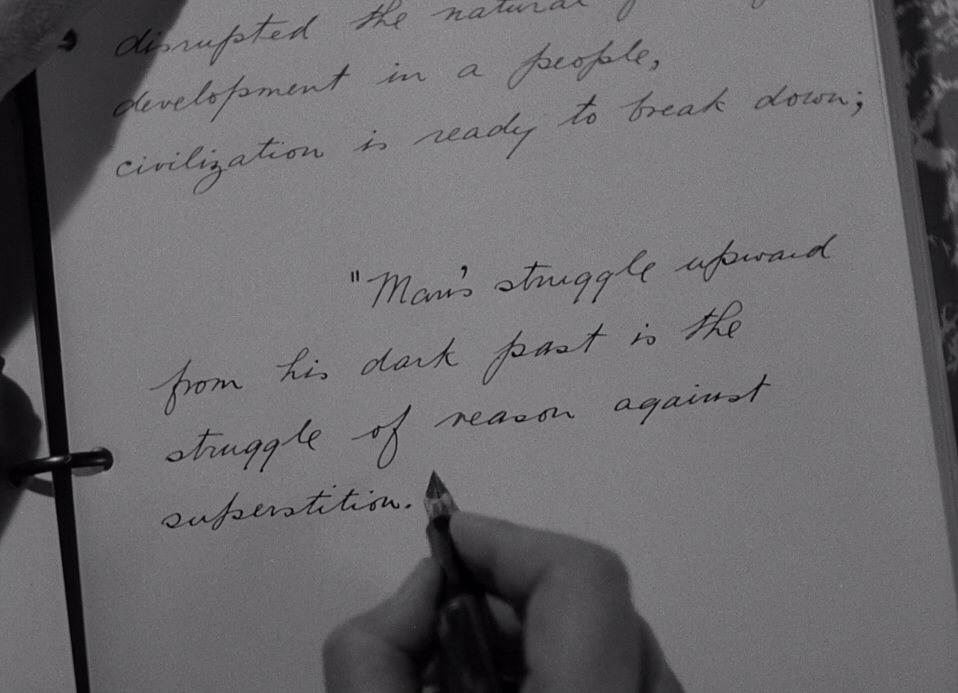 disrupted the natural
development in a people,
civilization is ready to break down;
"Man's struggle upward
from his dark past is the
struggle of reason against
superstition.